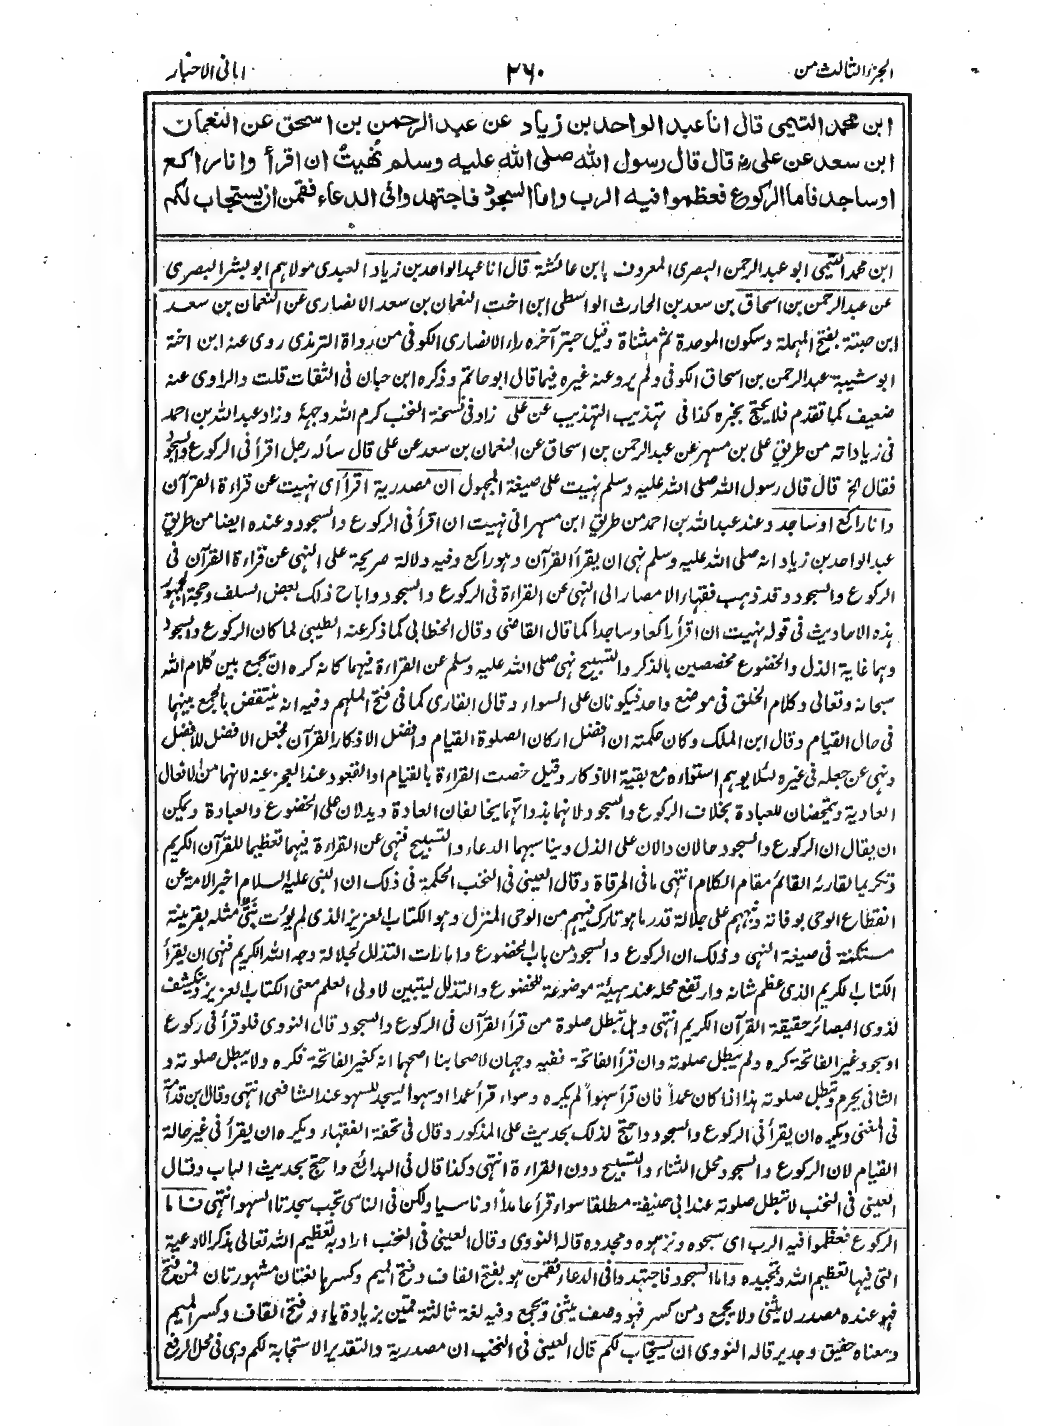 الجزء الثالث من
٢٦٠
امانى الاحبار
ابن محمد التيمى قال انا عبد الواحد بن زياد عن عبد الرحمن بن اسحق عن النعمان
ابن سعد عن على رض قال قال رسول الله صلى الله عليه وسلم نُهيتُ ان اقرأ وانا راكع
او ساجد فاما الركوع فعظموا فيه الرب واما السجود فاجتهدوا فى الدعاء فقمن ان يستجاب لكم
ابن محمد التيمى ابو عبد الرحمن البصرى المعروف بابن عائشة قال انا عبد الواحد بن زياد العبدى مولاهم ابو بشر البصرى
عن عبد الرحمن بن اسحاق بن سعد بن الحارث الواسطى ابن اخت النعمان بن سعد الانصارى عن النعمان بن سعد
ابن حبتة بفتح المهملة وسكون الموحدة ثم مثناة وقيل حبتر آخره راء الانصارى الكوفى من رواة الترمذى روى عنه ابن اخته
ابو شيبة عبد الرحمن بن اسحاق الكوفى ولم يرو عنه غيره فيما قال ابو حاتم وذكره ابن حبان فى الثقات قلت والراوى عنه
ضعيف كما تقدم فلا يحتج بخبره كذا فى تهذيب التهذيب عن على زاد فى نسخة النخب كرم الله وجهه وزاد عبد الله بن احمد
فى زياداته من طريق على بن مسهر عن عبد الرحمن بن اسحاق عن النعمان بن سعد عن على قال سأله رجل اقرأ فى الركوع والسجود
فقال الخ قال قال رسول الله صلى الله عليه وسلم نهيت على صيغة المجهول ان مصدرية اقرأ اى نهيت عن قراءة القرآن
وانا راكع او ساجد وعند عبد الله بن احمد من طريق ابن مسهر انى نهيت ان اقرأ فى الركوع والسجود وعنده ايضا من طريق
عبد الواحد بن زياد انه صلى الله عليه وسلم نهى ان يقرأ القرآن وهو راكع وفيه دلالة صريحة على النهى عن قراءة القرآن فى
الركوع والسجود وقد ذهب فقهاء الامصار الى النهى عن القراءة فى الركوع والسجود واباح ذلك بعض السلف وحجة الجمهور
هذه الاحاديث فى قوله نهيت ان اقرأ راكعا وساجدا كما قال القاضى وقال الخطابى كما ذكر عنه الطيبى لما كان الركوع والسجود
وهما غاية الذل والخضوع مخصصين بالذكر والتسبيح نهى صلى الله عليه وسلم عن القراءة فيهما كانه كره ان يجمع بين كلام الله
سبحانه وتعالى وكلام الخلق فى موضع واحد فيكونان على السواء وقال القارى كما فى فتح الملهم وفيه انه ينتقض بالجمع بينهما
فى حال القيام وقال ابن الملك وكان حكمته ان افضل اركان الصلوة القيام وافضل الاذكار القرآن فجعل الافضل للافضل
ونهى عن جعله فى غيره لئلا يوهم استواءه مع بقية الاذكار وقيل خصت القراءة بالقيام او القعود عند العجز عنه لانهما من الافعال
العادية ويتمحضان للعبادة بخلاف الركوع والسجود لانهما بذواتهما يخالفان العادة ويدلان على الخضوع والعبادة ويمكن
ان يقال ان الركوع والسجود حالان دالان على الذل ويناسبهما الدعاء والتسبيح فنهى عن القراءة فيهما تعظيما للقرآن الكريم
وتكريما لقارئه القائم مقام الكلام انتهى ما فى المرقاة وقال العينى فى النخب الحكمة فى ذلك ان النبى عليه السلام اخبر الامة عن
انقطاع الوحى بوفاته ونبههم على جلالة قدر ما هو تارك فيهم من الوحى المنزل وهو الكتاب العزيز الذى لم يؤت نبىٌّ مثله بقرينة
مستكنة فى صيغة النهى وذلك ان الركوع والسجود من باب الخضوع وامارات التذلل لجلالة وجه الله الكريم فنهى ان يقرأ
الكتاب الكريم الذى عظم شانه وارتفع محله عند هيئة موضوعة للخضوع والتذلل ليتبين لاولى العلم معنى الكتاب العزيز وينكشف
لذوى البصائر حقيقة القرآن الكريم انتهى وهل تبطل صلوة من قرأ القرآن فى الركوع والسجود قال النووى فلو قرأ فى ركوع
او سجود غير الفاتحة كره ولم يبطل صلوته وان قرأ الفاتحة ففيه وجهان لاصحابنا اصحهما انه كغير الفاتحة فكره ولا يبطل صلوته و
الثانى يحرم وتبطل صلوته هذا اذا كان عمداً فان قرأ سهواً لم يكره وسواء قرأ عمدا او سهوا يسجد للسهو عند الشافعى انتهى وقال بن قدامة
فى المغنى ويكره ان يقرأ فى الركوع والسجود واحتج لذلك بحديث على المذكور وقال فى تحفة الفقهاء ويكره ان يقرأ فى غير حالة
القيام لان الركوع والسجود محل الثناء والتسبيح دون القراءة انتهى وكذا قال فى البدائع واحتج بحديث الباب وقال
العينى فى النخب لا تبطل صلوته عند ابى حنيفة مطلقا سواء قرأ عامداً او ناسيا ولكن فى الناسى تجب سجدتا السهو انتهى فاما
الركوع فعظموا فيه الرب اى سبحوه ونزهوه ومجدوه قاله النووى وقال العينى فى النخب اراد به تعظيم الله تعالى بذكر الادعية
التى فيها تعظيم الله وتمجيده واما السجود فاجتهدوا فى الدعاء فقمن هو بفتح القاف وفتح الميم وكسرها لغتان مشهورتان فمن فتح
فهو عنده مصدر لا يثنى ولا يجمع ومن كسر فهو وصف يثنى ويجمع وفيه لغة ثالثة قمين بزيادة ياء وفتح القاف وكسر الميم
ومعناه حقيق وجدير قاله النووى ان يستجاب لكم قال العينى فى النخب ان مصدرية والتقدير الاستجابة لكم وهى فى محل الرفع